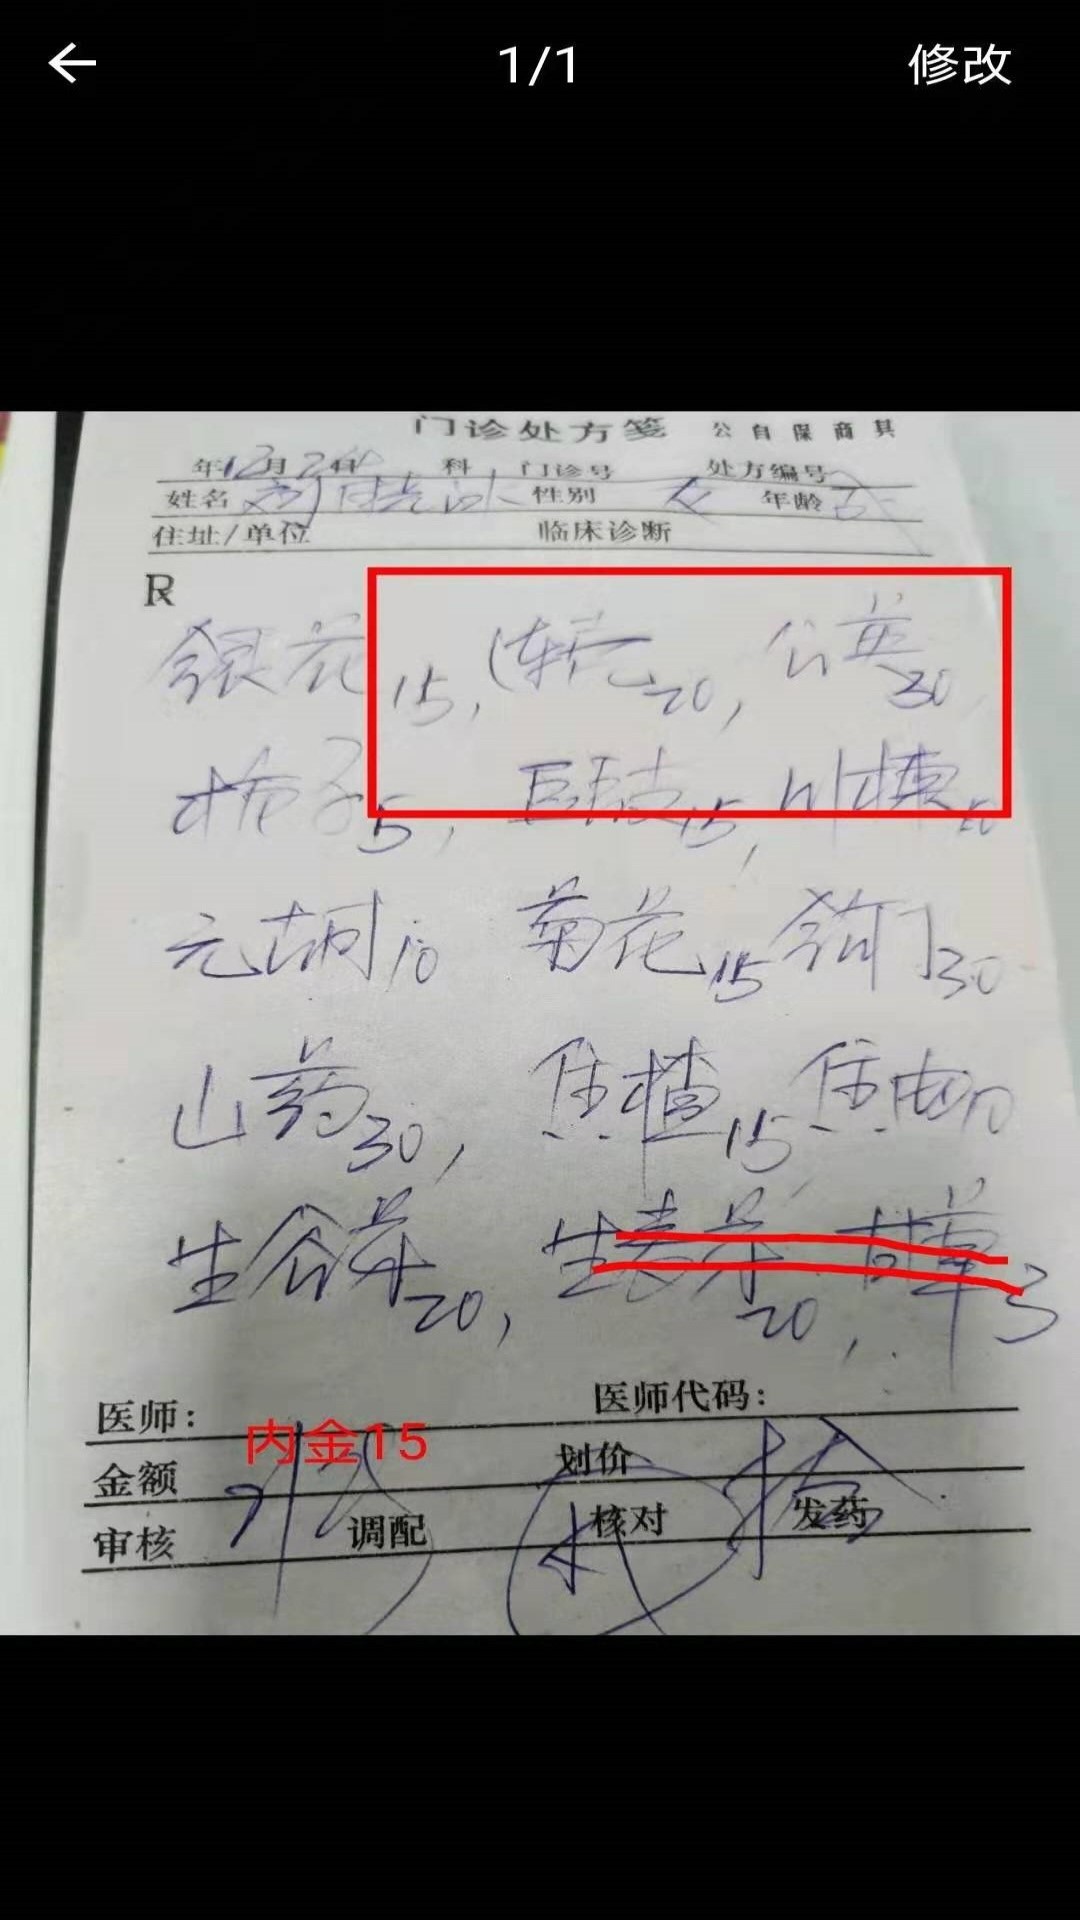 1/1 修改
门诊处方笺 公 自 保 商 其
年12月2 科 门诊号 处方编号
姓名 刘 性别 女 年龄
住址/单位 临床诊断
R
银花15, 连 20, 公英30,
栀子5, 15, 川楝10
元胡10 菊花15 钩丁30
山药30, 焦楂15 焦曲10
生谷芽20, 生麦芽20, 甘草3
医师: 医师代码:
内金15
金额 划价
审核 调配 核对 发药